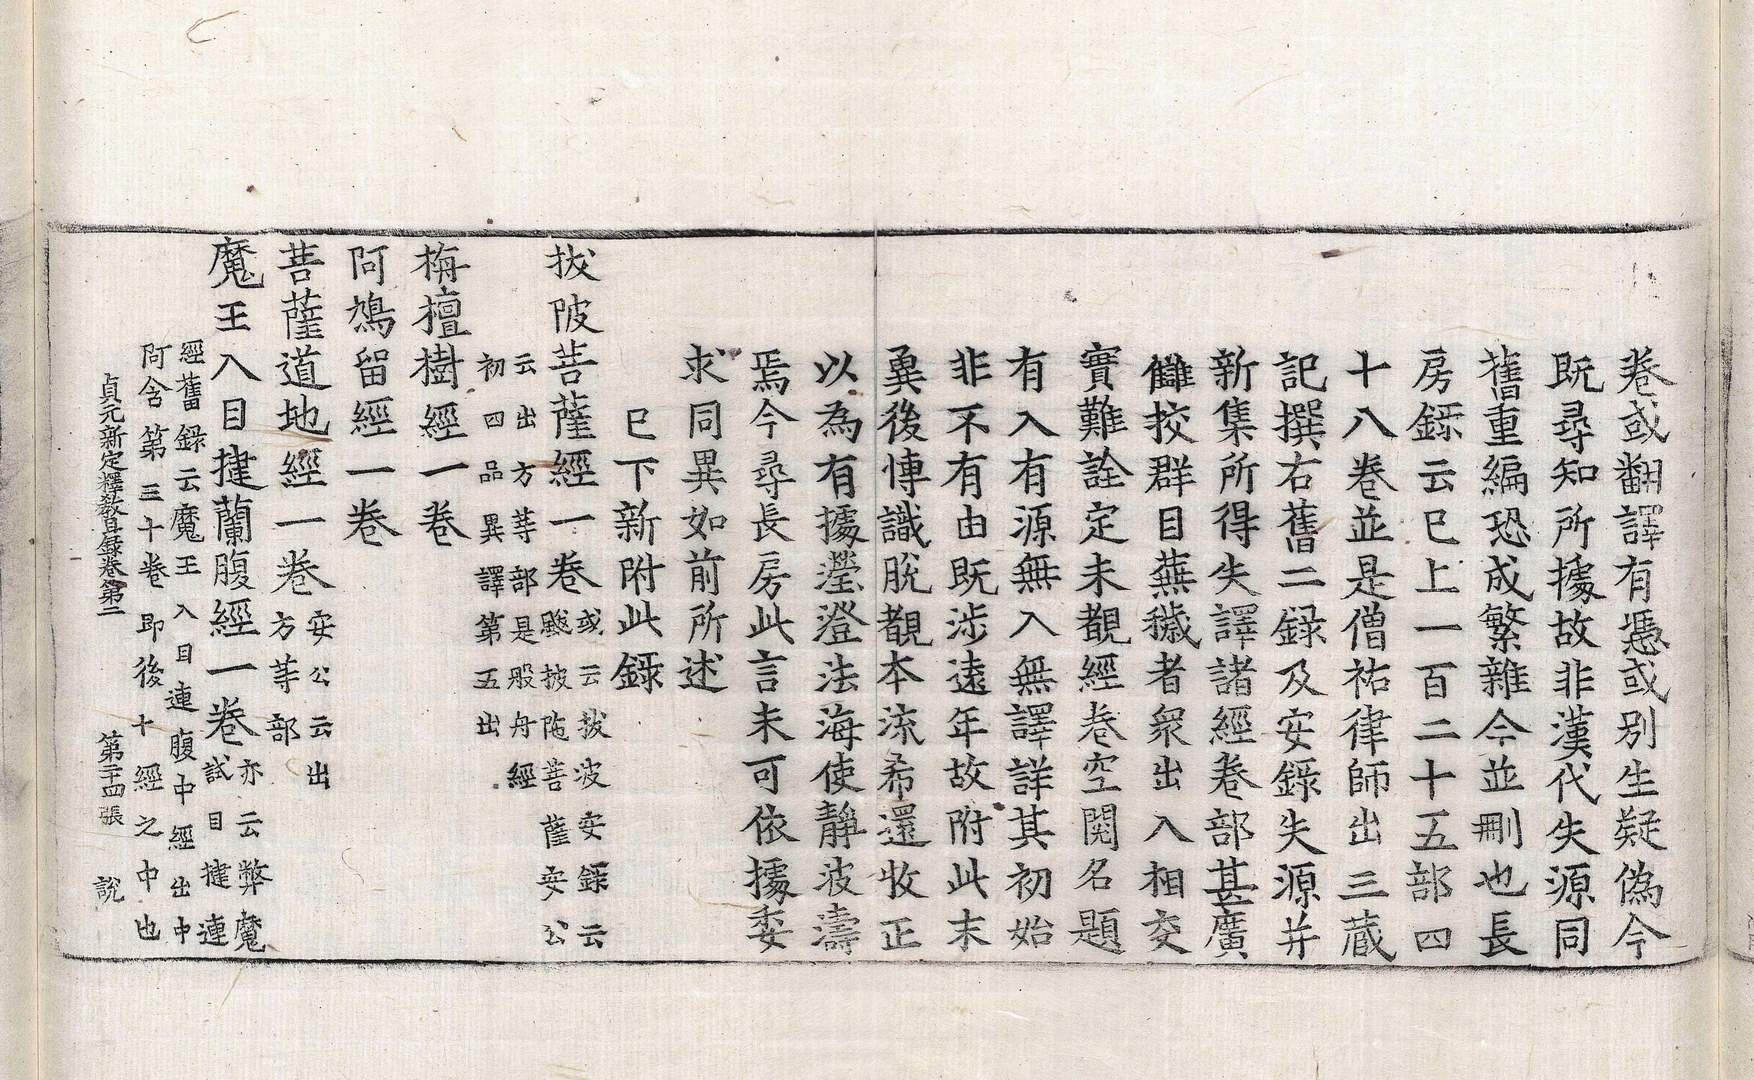 卷或翻譯有憑或別生疑偽今
既尋知所據故非漢代失源同
舊重編恐成繁雜今並刪也長
房錄云已上一百二十五部四
十八卷並是僧祐律師出三藏
記撰右舊二錄及安錄失源并
新集所得失譯諸經卷部甚廣
讎挍群目蕪穢者衆出入相交
實難詮定未覩經卷空閱名題
有入有源無入無譯詳其初始
非不有由既涉遠年故附此末
兾後愽識脫覩本流希還收正
以為有據瀅澄法海使靜波濤
焉今尋長房此言未可依據委
求同異如前所述
已下新附此錄
拔陂菩薩經一卷
或云拔波安錄云
颰披陁菩薩安公
云出方等部是般舟經
初四品異譯第五出
栴檀樹經一卷
阿鳩留經一卷
菩薩道地經一卷
安公云出
方等部
魔王入目揵蘭腹經一卷
亦云弊魔
試目揵連
經舊錄云魔王入目連腹中經出中
阿含第三十卷即後十經之中也
貞元新定釋教目錄卷第二 第二十四張 說